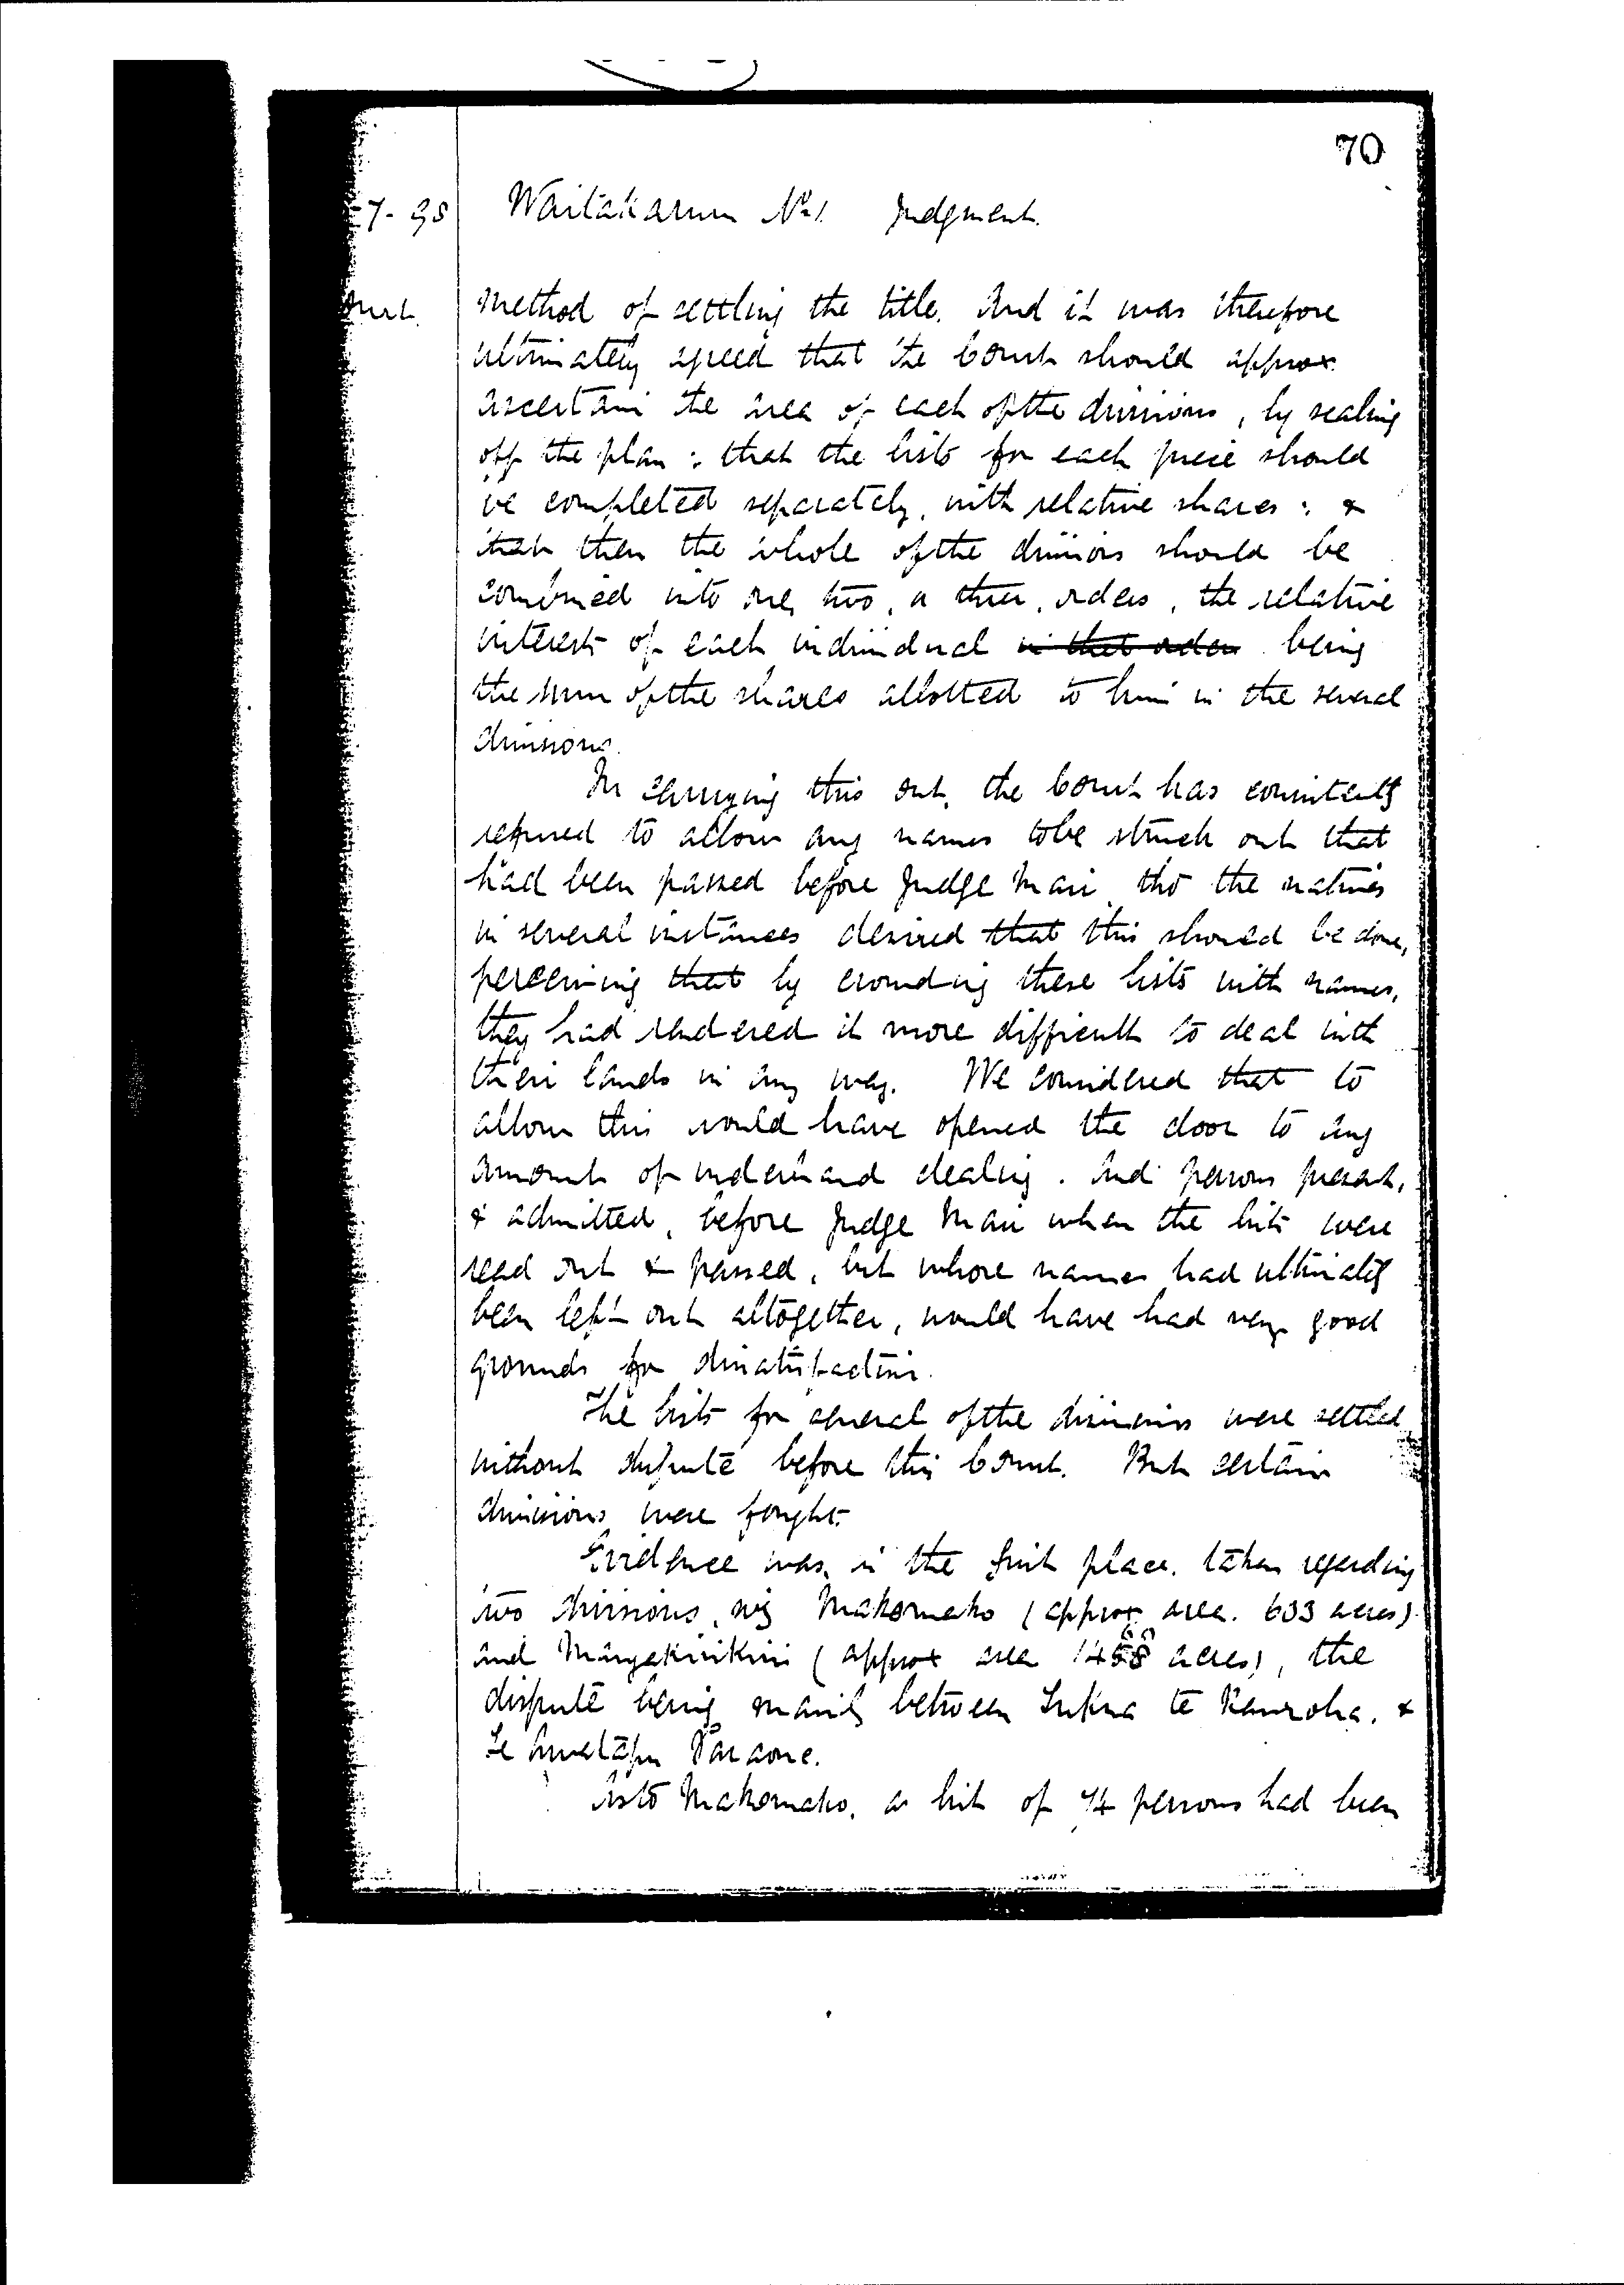 70
-7-98 Waitakaruru No 1. Judgment.
Court. method of settling the title. And it was therefore
ultimately agreed that the Court should approx.
ascertain the area of each of the divisions, by scaling
off the plan: that the lists for each piece should
be completed separately, with relative shares: &
that then the whole of the divisions should be
combined into one, two, or three, orders, the relative
interest of each individual in that order being
the sum of the shares allotted to him in the several
divisions.
In carrying this out, the Court has consistently
refused to allow any names to be struck out that
had been passed before Judge Mair, tho' the natives
in several instances desired that this should be done,
perceiving that by crowding these lists with names,
they had rendered it more difficult to deal with
their lands in any way. We considered that to
allow this would have opened the door to any
amount of underhand dealing. And persons present,
& admitted, before Judge Mair when the lists were
read out & passed, but whose names had ultimately
been left out altogether, would have had very good
grounds for dissatisfaction.
The lists for several of the divisions were settled
without dispute before this Court. But certain
divisions were fought.
Evidence was, in the first place, taken regarding
two divisions, viz Makomako (approx area. 633 acres)
and Mangakirikiri (approx area 1458 acres), the
dispute being mainly between te &
Te Paraone.
As to Makomako, a list of 74 persons had been